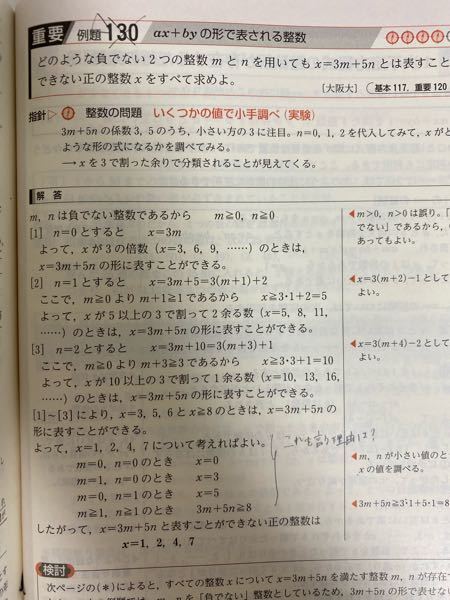 重要 例題 130 ax+byの形で表される整数
どのような負でない2つの整数mとnを用いてもx=3m+5nとは表すこと
できない正の整数xをすべて求めよ。
[大阪大] 基本117, 重要120
指針 整数の問題 いくつかの値で小手調べ(実験)
3m+5nの係数3, 5のうち, 小さい方の3に注目。n=0, 1, 2を代入してみて, xがど
ような形の式になるかを調べてみる。
→xを3で割った余りで分類されることが見えてくる。
解答
m, nは負でない整数であるから m≧0, n≧0
[1] n=0とすると x=3m
よって, xが3の倍数(x=3, 6, 9, ……)のときは,
x=3m+5nの形に表すことができる。
[2] n=1とすると x=3m+5=3(m+1)+2
ここで, m≧0よりm+1≧1であるから x≧3・1+2=5
よって, xが5以上の3で割って2余る数(x=5, 8, 11,
……)のときは, x=3m+5nの形に表すことができる。
[3] n=2とすると x=3m+10=3(m+3)+1
ここで, m≧0よりm+3≧3であるから x≧3・3+1=10
よって, xが10以上の3で割って1余る数(x=10, 13, 16,
……)のときは, x=3m+5nの形に表すことができる。
[1]~[3]により, x=3, 5, 6とx≧8のときは, x=3m+5nの
形に表すことができる。
よって, x=1, 2, 4, 7について考えればよい。
m=0, n=0のとき x=0
m=1, n=0のとき x=3
m=0, n=1のとき x=5
m≧1, n≧1のとき 3m+5n≧8
したがって, x=3m+5nと表すことができない正の整数は
x=1, 2, 4, 7
理由は?
◀m>0, n>0は誤り。「
でない」であるから,
あってもよい。
◀x=3(m+2)-1として
よい。
◀x=3(m+4)-2として
よい。
◀m, nが小さい値のと
xの値を調べる。
◀3m+5n≧3・1+5・1=8
検討
次ページの(*)によると, すべての整数xについてx=3m+5nを満たす整数m, nが存在